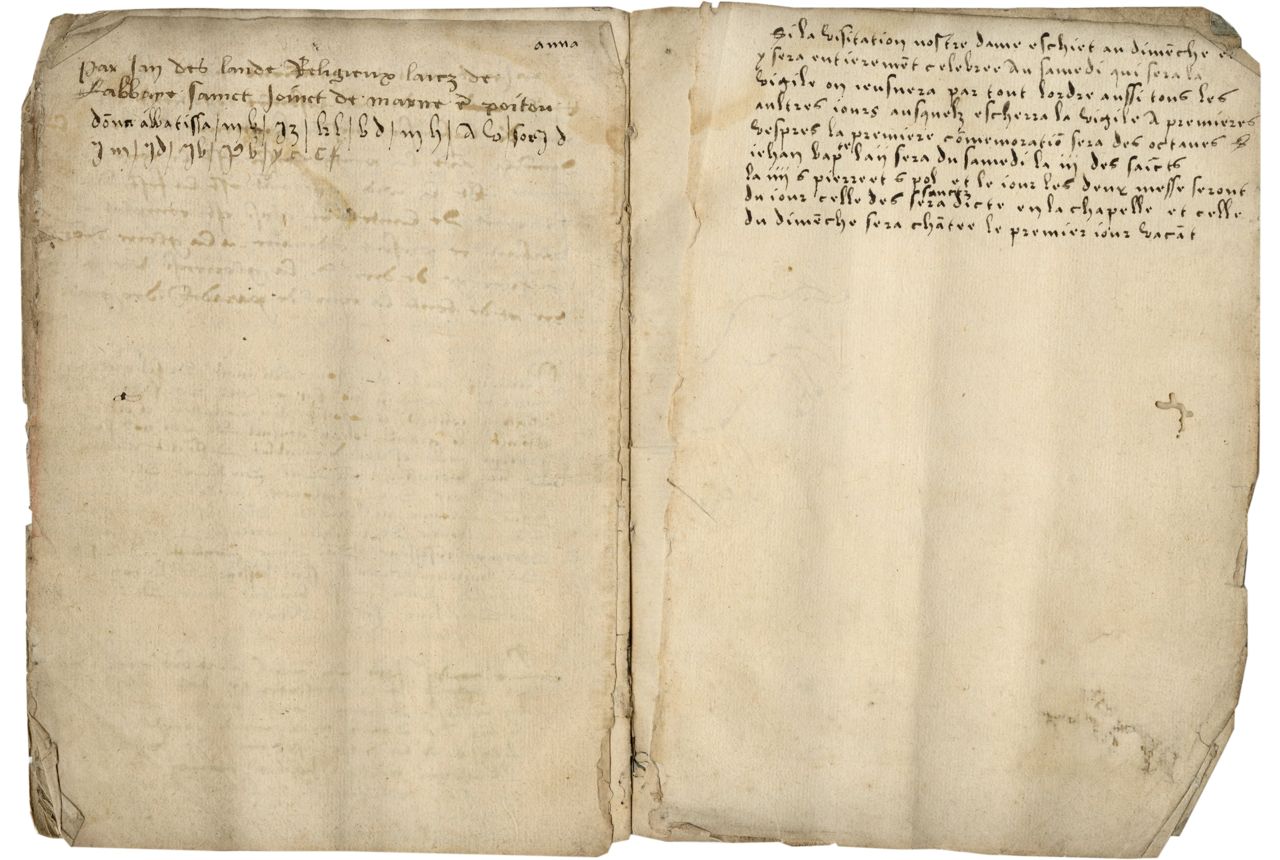 anna
Par Jan des lande Religieux laicz de
Labbaye sainct Joinct de marne ē poitou
dōna abbatissa
Si la visitation nostre dame eschiet au dimēche el
y sera entieremēt celebree Au samedi qui sera la
vigile on ieusnera par tout lordre aussi tous les
aultres iours ausquelz escherra la vigile A premieres
vespres la premiere cōmemoratiō sera des octaues s
iehan bapte la ii sera du samedi la iii des saīcts
la iiii s pierre et s pol et le iour les deux messe seront
du iour celle des sainctz sera dicte en la chapelle et celle
du dimēche sera chātee le premier iour vacāt